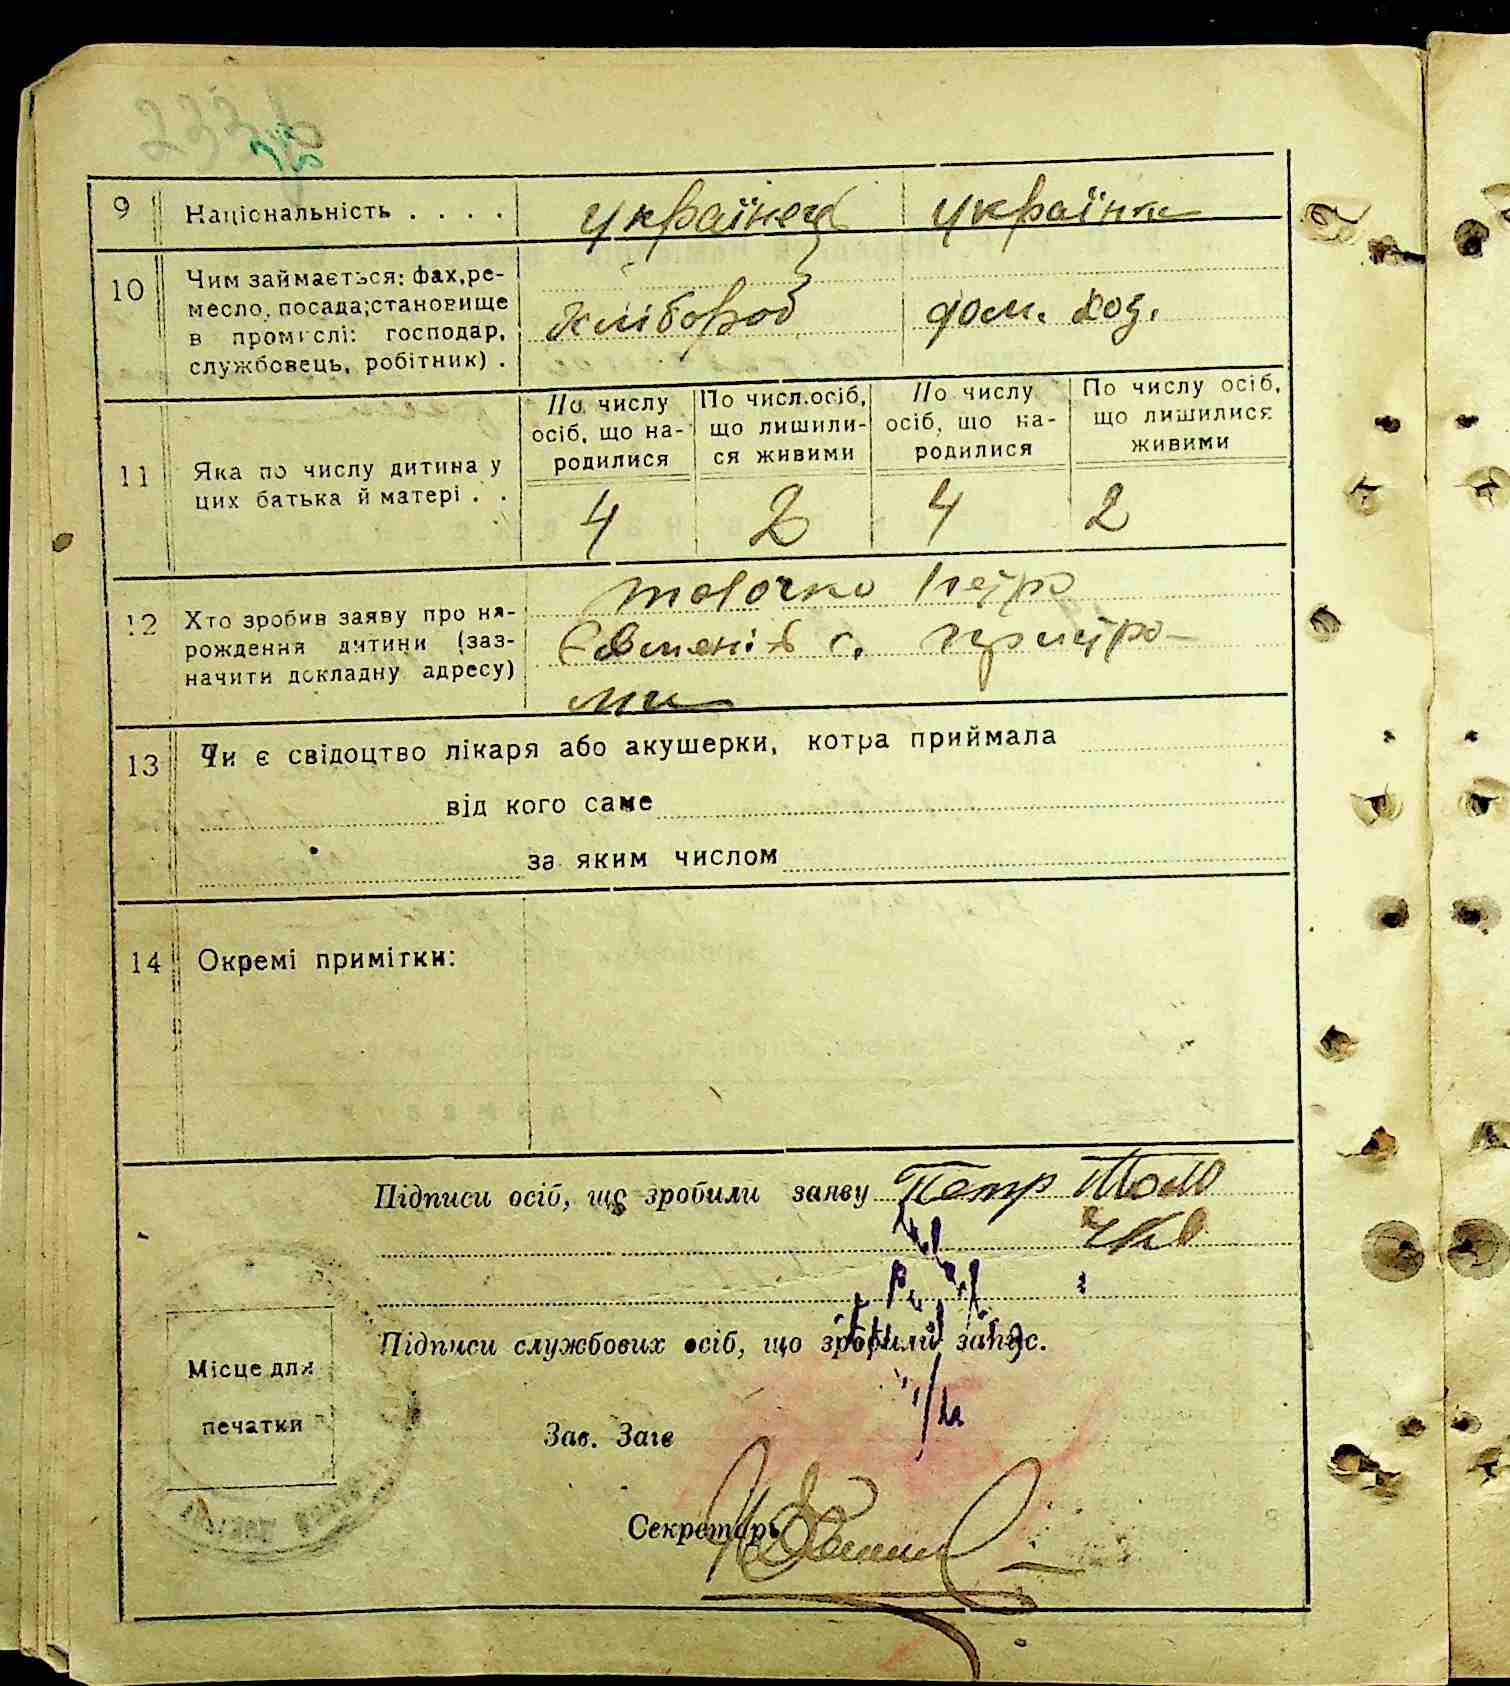 9 Національність . . . . українець українка
10 Чим займається: фах, ре-
месло, посада; становище
в промислі: господар,
службовець, робітник) .
хлібороб дом. хоз.
По числу осіб, що на-родилися
По числ. осіб, що лишили-ся живими
По числу осіб, що на-родилися
По числу осіб, що лишилися живими
11 Яка по числу дитина у
цих батька й матері . .
4 2 4 2
12 Хто зробив заяву про на-
рождення дитини (заз-
начити докладну адресу)
Толочко Петро
Євменів с.
13 Чи є свідоцтво лікаря або акушерки, котра приймала
від кого саме
за яким числом
14 Окремі примітки:
Підписи осіб, що зробили заяву Петр Толо
чко
Підписи службових осіб, що зробили запис.
Місце для
печатки
Зав. Загс
Секретарь